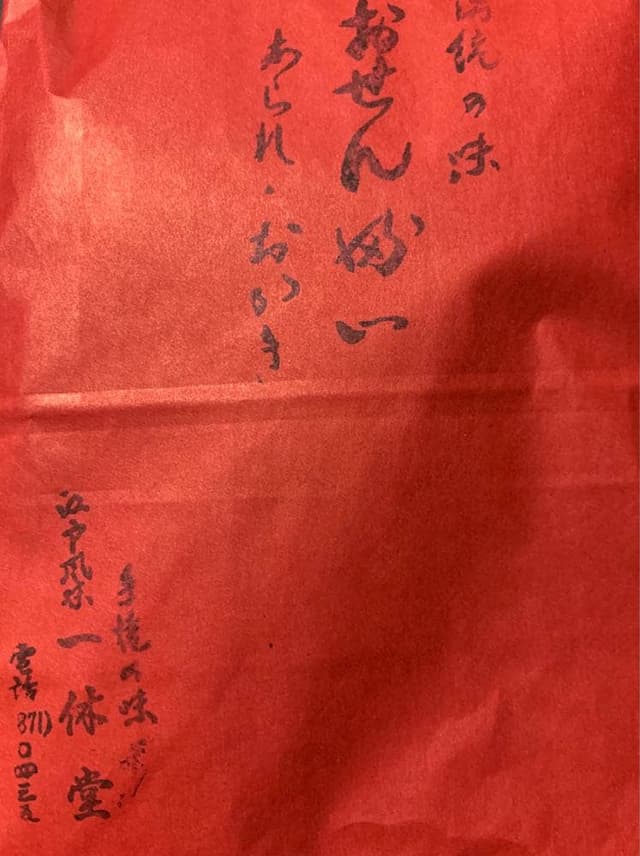 統の味
おせんべい
あられ・おかき
手焼の味
江戸風味 一休堂
電話 871)〇四三五